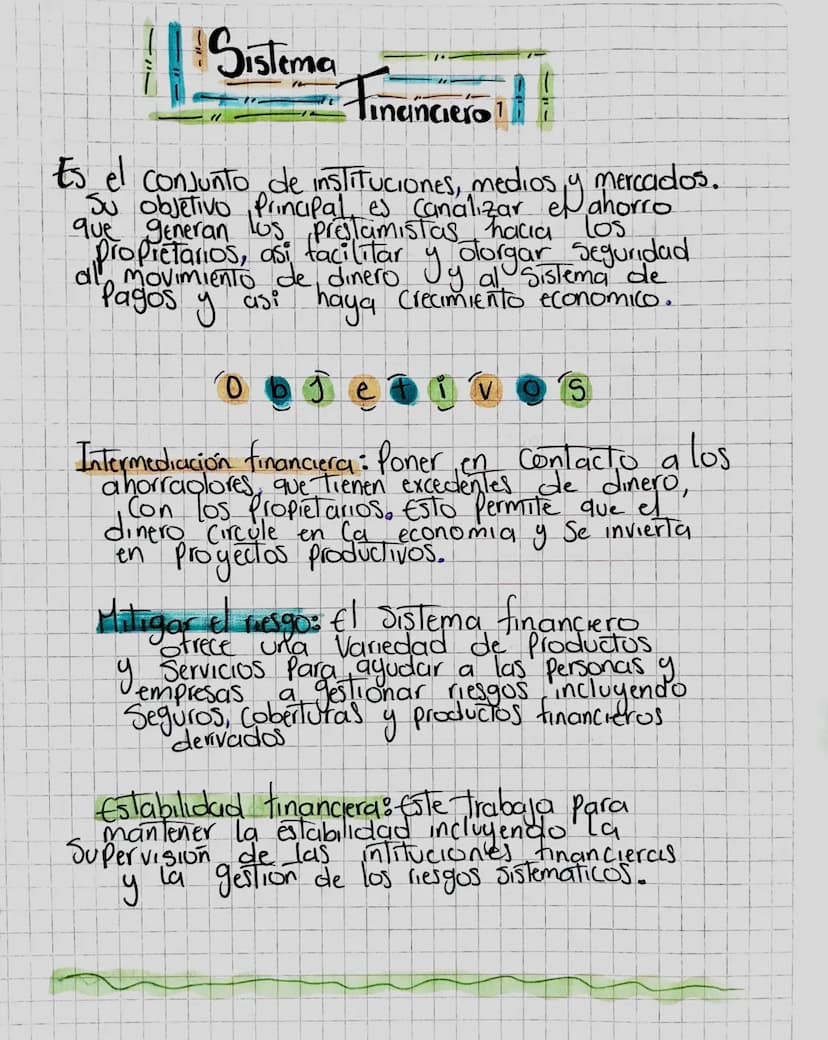 Sistema
Financiero
Es el conjunto de instituciones, medios y mercados.
Su objetivo principal es canalizar el ahorro
que generan los prestamistas hacia los
propietarios, asi facilitar y otorgar seguridad
al movimiento de dinero y al sistema de
Pagos y asi haya crecimiento economico.
Objetivos
Intermediación financiera: Poner en contacto a los
ahorradores, que tienen excedentes de dinero,
Con los Propietarios. Esto Permite que el
dinero circule en la economia y se invierta
en Proyectos Productivos.
Mitigar el riesgo: El Sistema financiero
ofrece una Variedad de Productos
y Servicios Para ayudar a las Personas y
empresas a gestionar riesgos incluyendo
Seguros, Coberturas y productos financieros
derivados
Estabilidad financiera: Este trabaja para
mantener la estabilidad incluyendo la
Supervisión de las intituciones financieras
y la gestion de los riesgos sistematicos.